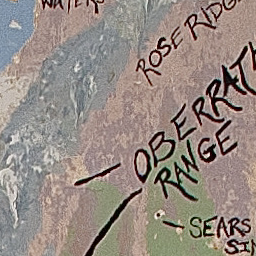 WATERS
ROSE RIDGE
OBERRATH
RANGE
SEARS